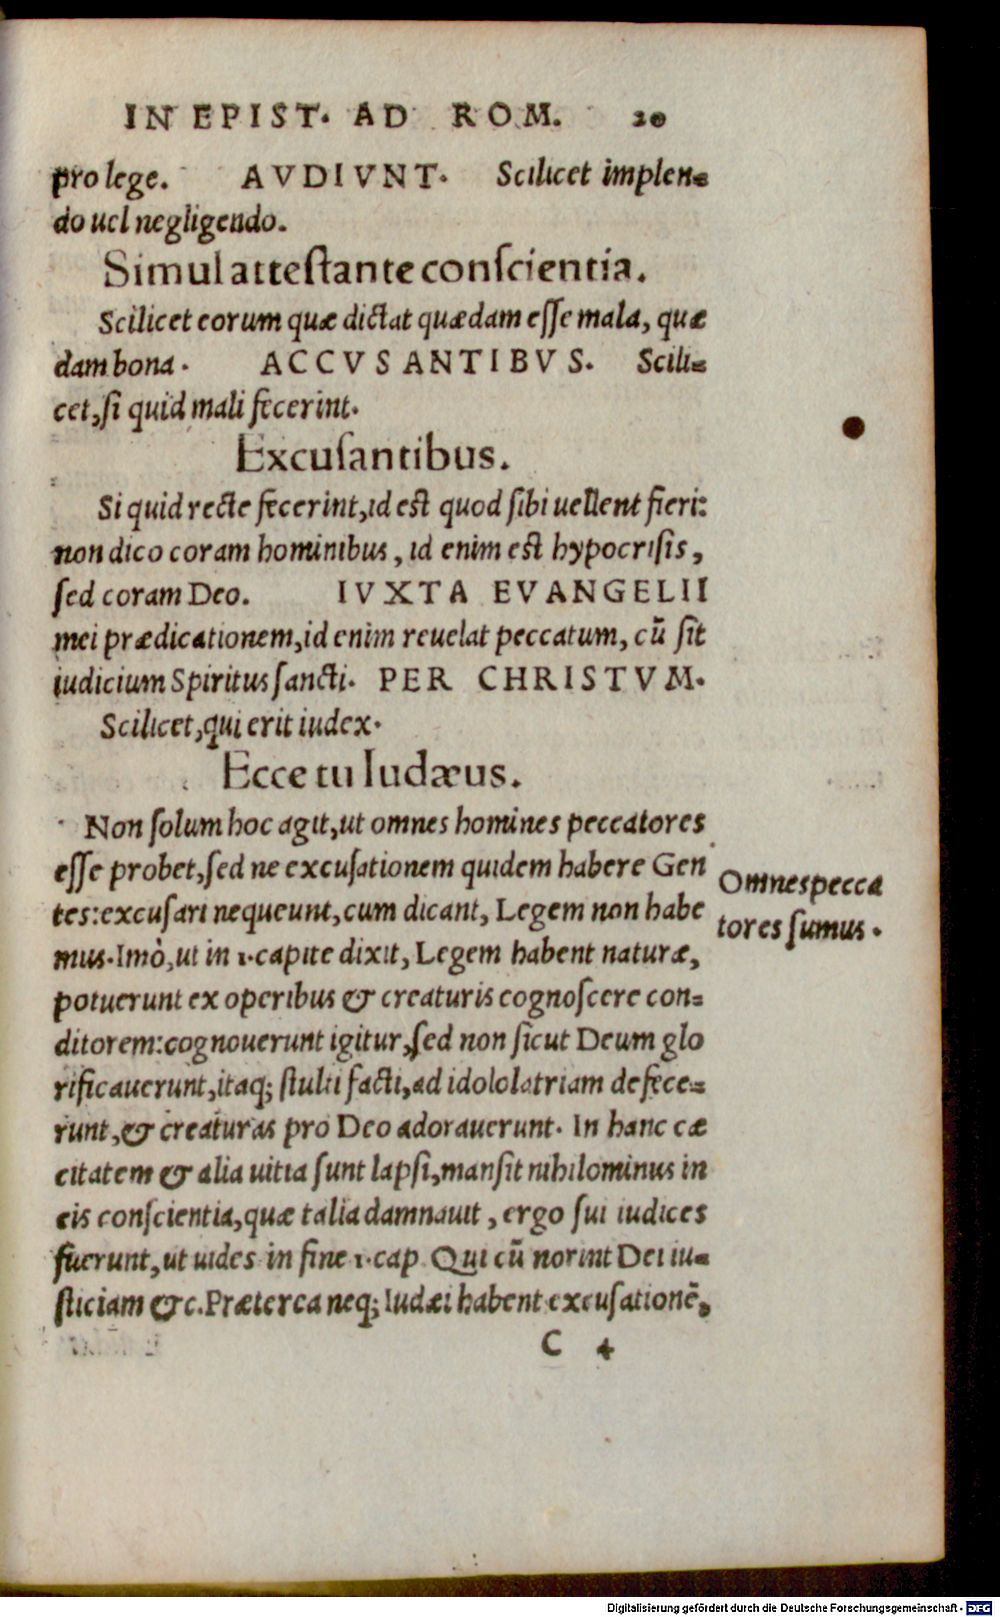 IN EPIST. AD ROM. 20
pro lege. AVDIVNT. Scilicet implen=
do uel negligendo.
Simul atteſtante conſcientia.
Scilicet eorum quæ dictat quædam eſſe mala, quæ
dam bona. ACCVSANTIBVS. Scili=
cet, ſi quid mali fecerint.
Excuſantibus.
Si quid recte fecerint, id eſt quod ſibi uellent fieri:
non dico coram hominibus, id enim eſt hypocriſis,
ſed coram Deo. IVXTA EVANGELII
mei prædicationem, id enim reuelat peccatum, cū ſit
iudicium Spiritus ſancti. PER CHRISTVM.
Scilicet, qui erit iudex.
Ecce tu Iudæus.
Non ſolum hoc agit, ut omnes homines peccatores
eſſe probet, ſed ne excuſationem quidem habere Gen
tes: excuſari nequeunt, cum dicant, Legem non habe
mus. Imò, ut in 1. capite dixit, Legem habent naturæ,
potuerunt ex operibus & creaturis cognoſcere con=
ditorem: cognouerunt igitur, ſed non ſicut Deum glo
rificauerunt, itaq; ſtulti facti, ad idololatriam defece=
runt, & creaturas pro Deo adorauerunt. In hanc cæ
citatem & alia uitia ſunt lapſi, manſit nihilominus in
eis conſcientia, quæ talia damnauit, ergo ſui iudices
fuerunt, ut uides in fine 1. cap. Qui cū norint Dei iu=
ſticiam &c. Præterea neq; Iudæi habent excuſationē,
C 4
Omnes pecca
tores ſumus.
Digitalisierung gefördert durch die Deutsche Forschungsgemeinschaft - DFG